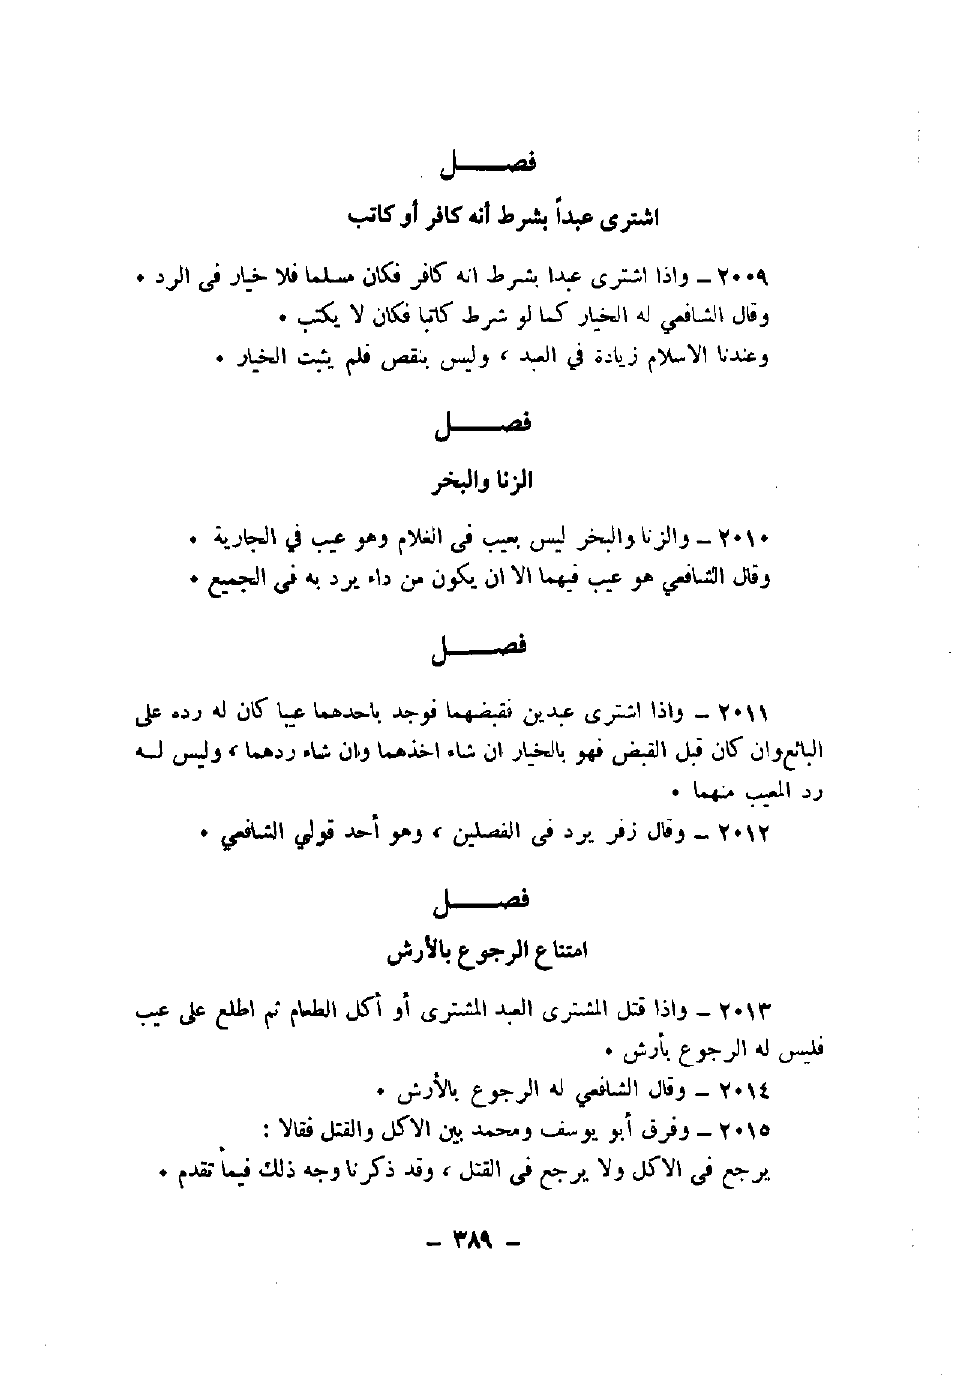 فصــــــل
اشترى عبداً بشرط أنه كافر أو كاتب
٢٠٠٩ ــ واذا اشترى عبدا بشرط انه كافر فكان مسلما فلا خيار فى الرد •
وقال الشافعي له الخيار كما لو شرط كاتبا فكان لا يكتب •
وعندنا الاسلام زيادة في العبد ، وليس بنقص فلم يثبت الخيار •
فصــــــل
الزنا والبخر
٢٠١٠ ــ والزنا والبخر ليس بعيب فى الغلام وهو عيب في الجارية •
وقال الشافعي هو عيب فيهما الا ان يكون من داء يرد به فى الجميع •
فصــــــل
٢٠١١ ــ واذا اشترى عبدين فقبضهما فوجد باحدهما عيبا كان له رده على
البائع وان كان قبل القبض فهو بالخيار ان شاء اخذهما وان شاء ردهما ، وليس لــه
رد المعيب منهما •
٢٠١٢ ــ وقال زفر يرد فى الفصلين ، وهو أحد قولي الشافعي •
فصــــــل
امتناع الرجوع بالأرش
٢٠١٣ ــ واذا قتل المشترى العبد المشترى أو أكل الطعام ثم اطلع على عيب
فليس له الرجوع بأرش •
٢٠١٤ ــ وقال الشافعي له الرجوع بالأرش •
٢٠١٥ ــ وفرق أبو يوسف ومحمد بين الاكل والقتل فقالا :
يرجع فى الاكل ولا يرجع فى القتل ، وقد ذكرنا وجه ذلك فيما تقدم •
ــ ٣٨٩ ــ